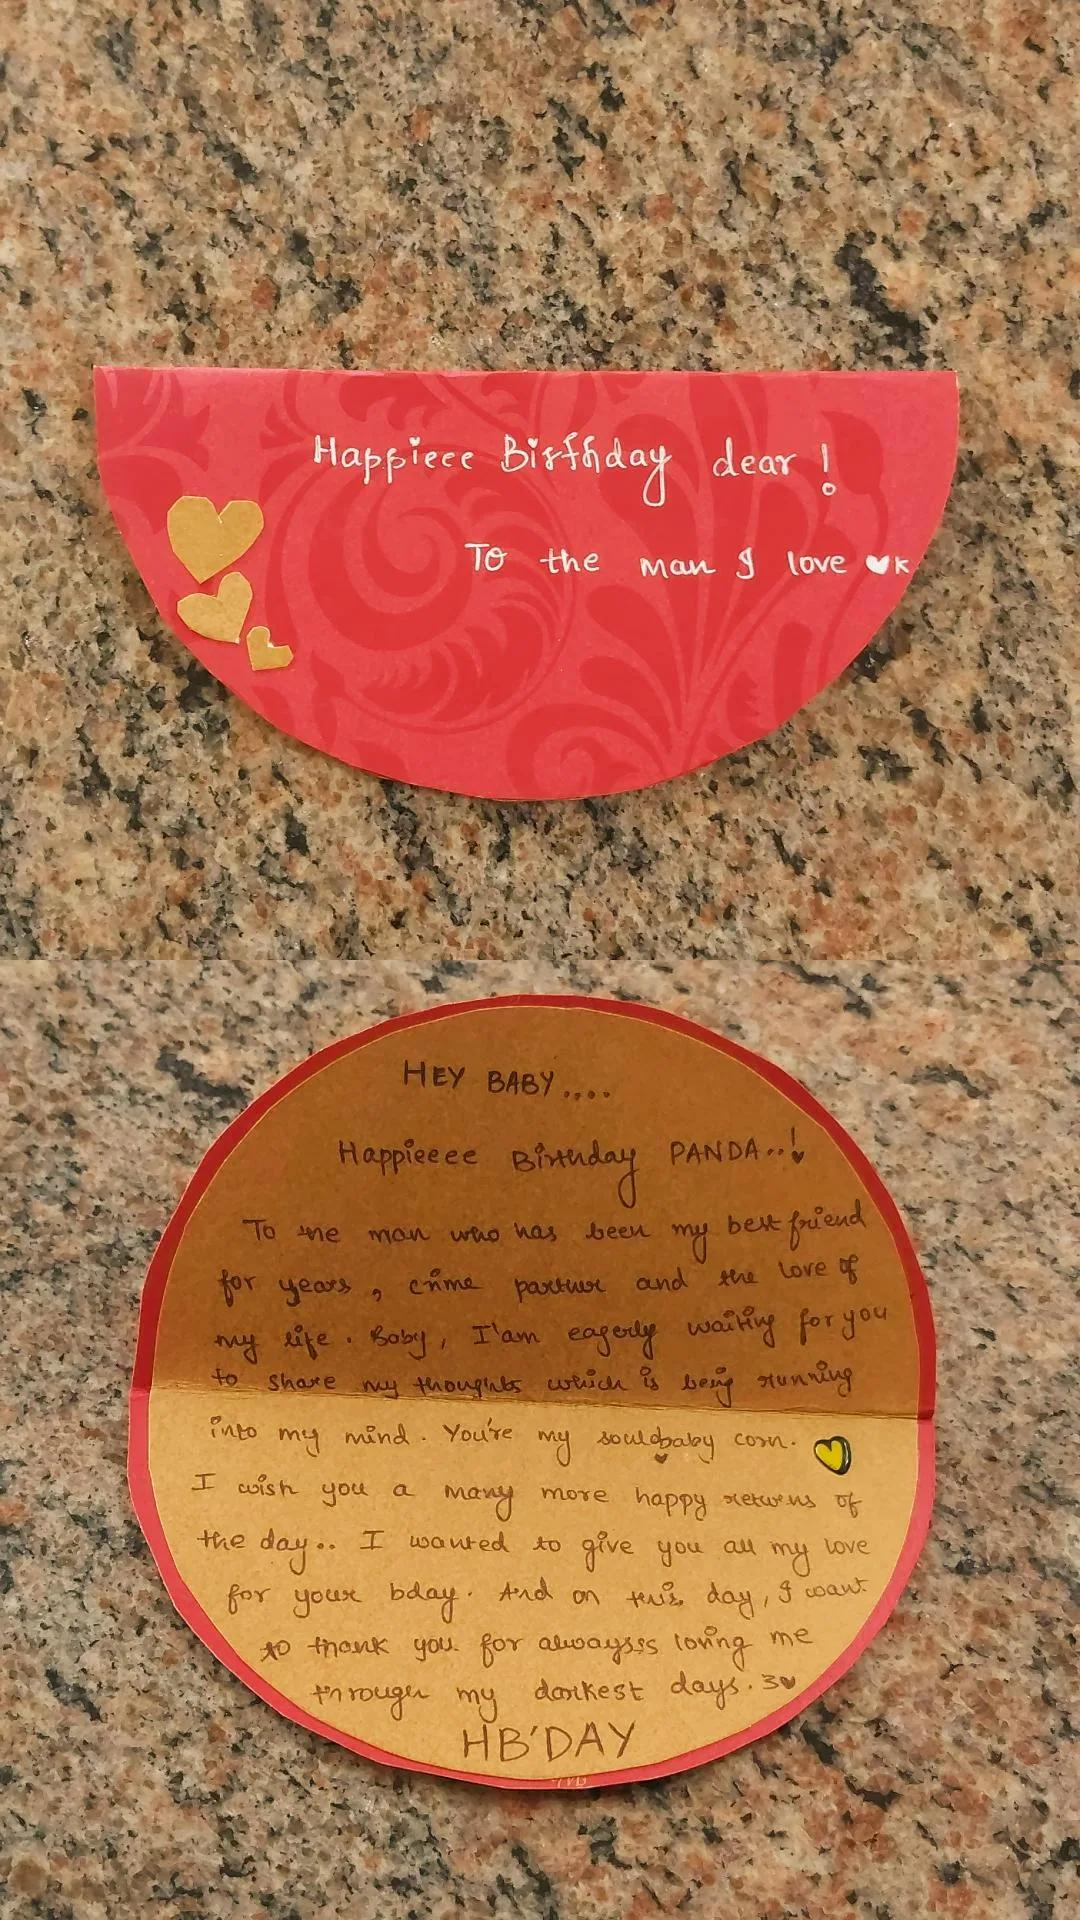 Happieee Birthday dear !
To the man I love ♥K
HEY BABY....
Happieeee Birthday PANDA..!
To the man who has been my best friend
for years , crime partner and the love of
my life . Baby, I'am eagerly waiting for you
to share my thoughts which is being running
into my mind. You're my soul baby corn.
I wish you a many more happy returns of
the day.. I wanted to give you all my love
for your bday. And on this day, I want
to thank you for alwaysss loving me
through my darkest days. 3♥
HB'DAY